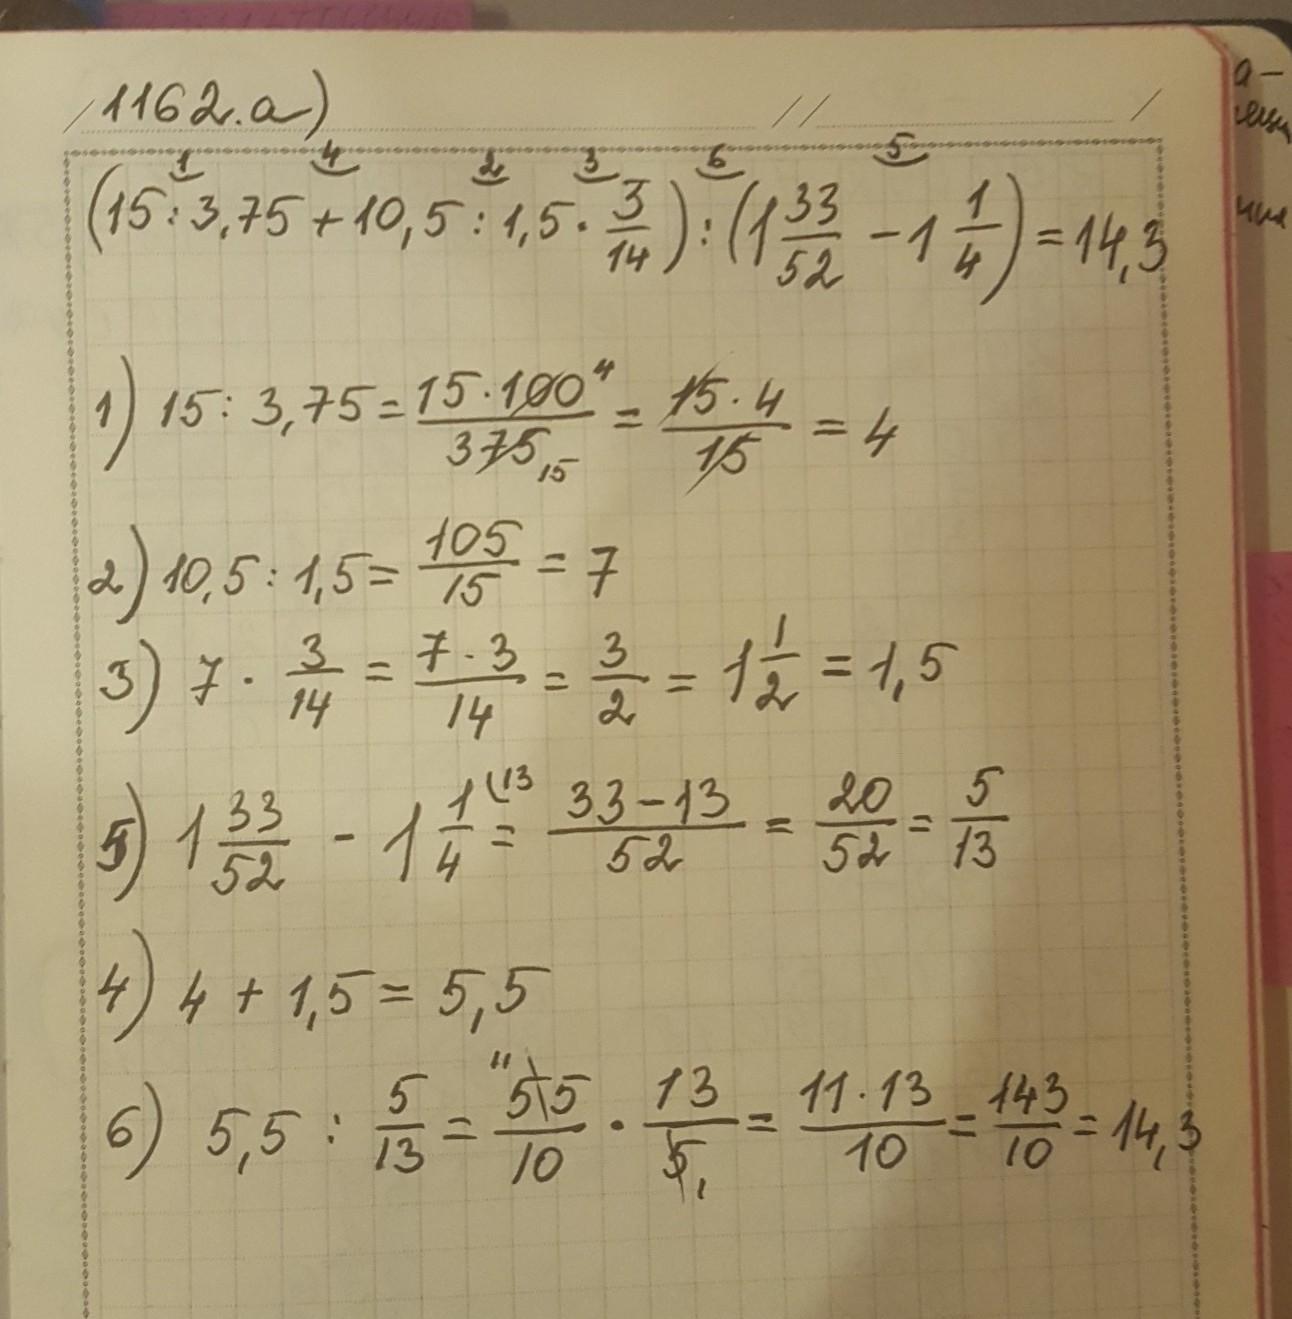 1162.а)
1 4 2 3 6 5
(15 : 3,75 + 10,5 : 1,5 · 3/14) : (1 33/52 − 1 1/4) = 14,3
1) 15 : 3,75 = 15·100⁴/375,15 = 15·4/15 = 4
2) 10,5 : 1,5 = 105/15 = 7
3) 7 · 3/14 = 7·3/14 = 3/2 = 1 1/2 = 1,5
5) 1 33/52 − 1 1/4 (13 = 33−13/52 = 20/52 = 5/13
4) 4 + 1,5 = 5,5
6) 5,5 : 5/13 = ¹¹55/10 · 13/5,1 = 11·13/10 = 143/10 = 14,3